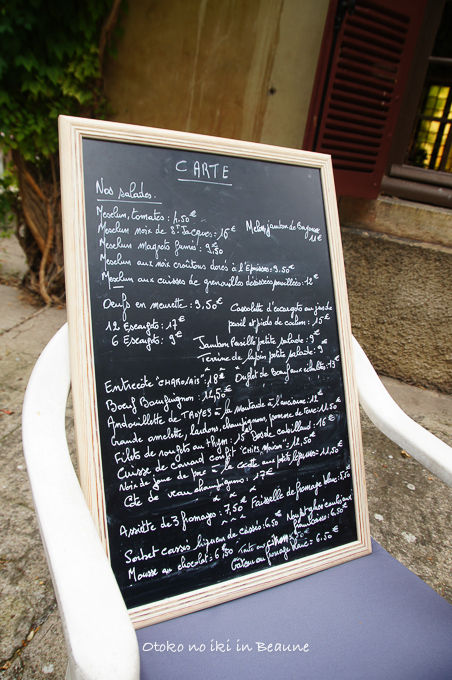 CARTE
Nos salades.
Mesclun, tomates : 4.50€
Mesclun noix de St Jacques : 16€
Melon jambon de Bayonne 11€
Mesclun Magrets fumé : 9.50
Mesclun aux noix croûtons dorés à l'Epoisses : 9.50€
Mesclun aux cuisses de grenouilles désossées : 12€
Oeufs en meurette : 9,50€
Cassolette d'escargots au jus de
persil et pieds de cochon : 15€
12 Escargots : 17€
6 Escargots : 9€
Jambon Persillé petite salade : 9€
Terrine de lapin petite salade : 9€
Entrecôte "CHAROLAIS" : 18€
Onglet de Boeuf aux échalotes
Boeuf Bourguignon : 14,50€
Andouillette de TROYES à la Moutarde à l'ancienne : 12€
Grande omelette, lardons, champignon, pomme de terre : 11.50€
Filets de rougets au thym : 15€
Dos de cabillaud : 16€
Cuisse de canard confit "CHITS MAISON" : 12.50€
Noix de joue de porc à la
Côte de veau champignons : 17€
Assiette de 3 fromages : 7,50€
Faisselle de fromage blanc : 5,50€
Sorbet cassis liqueur de cassis : 6.50€
Mousse au chocolat : 6.50
Gateau au fromage blanc : 6.50€
Otoko no iki in Beaune